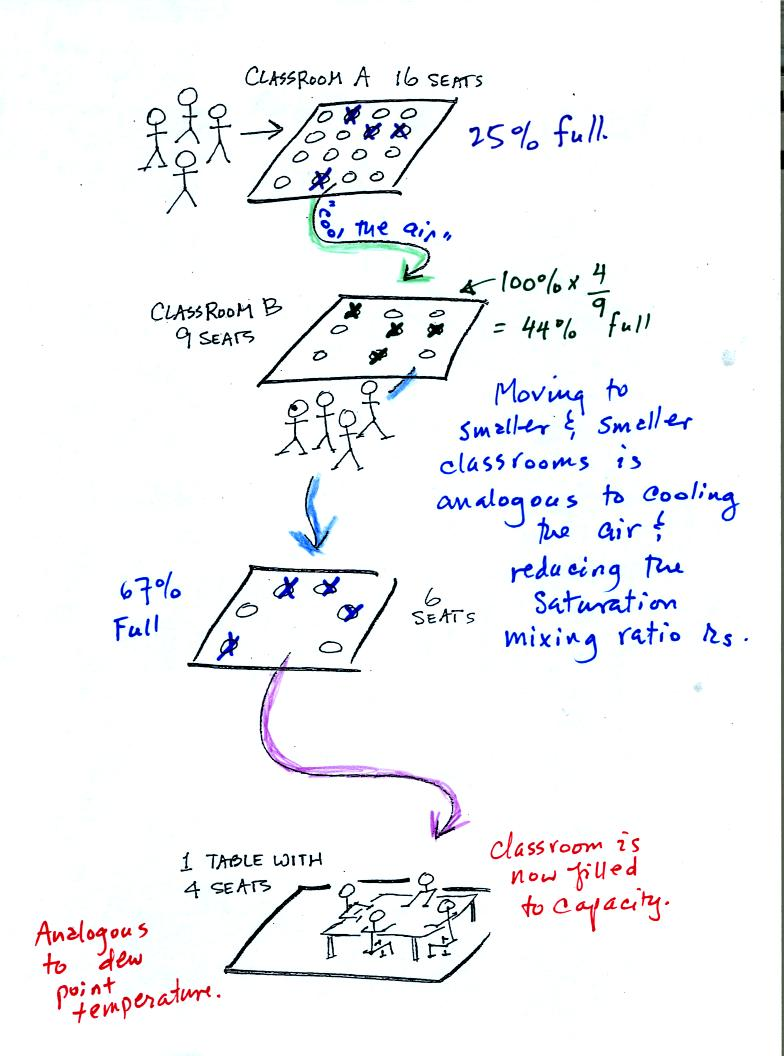 CLASSROOM A 16 SEATS
25% full.
"cool the air"
100% x 4/9
= 44% full
CLASSROOM B
9 SEATS
Moving to
smaller & smaller
classrooms is
analogous to cooling
the air &
reducing the
saturation
mixing ratio rs.
67%
Full
6
SEATS
1 TABLE WITH
4 SEATS
Classroom is
now filled
to capacity.
Analogous
to dew
point
temperature.